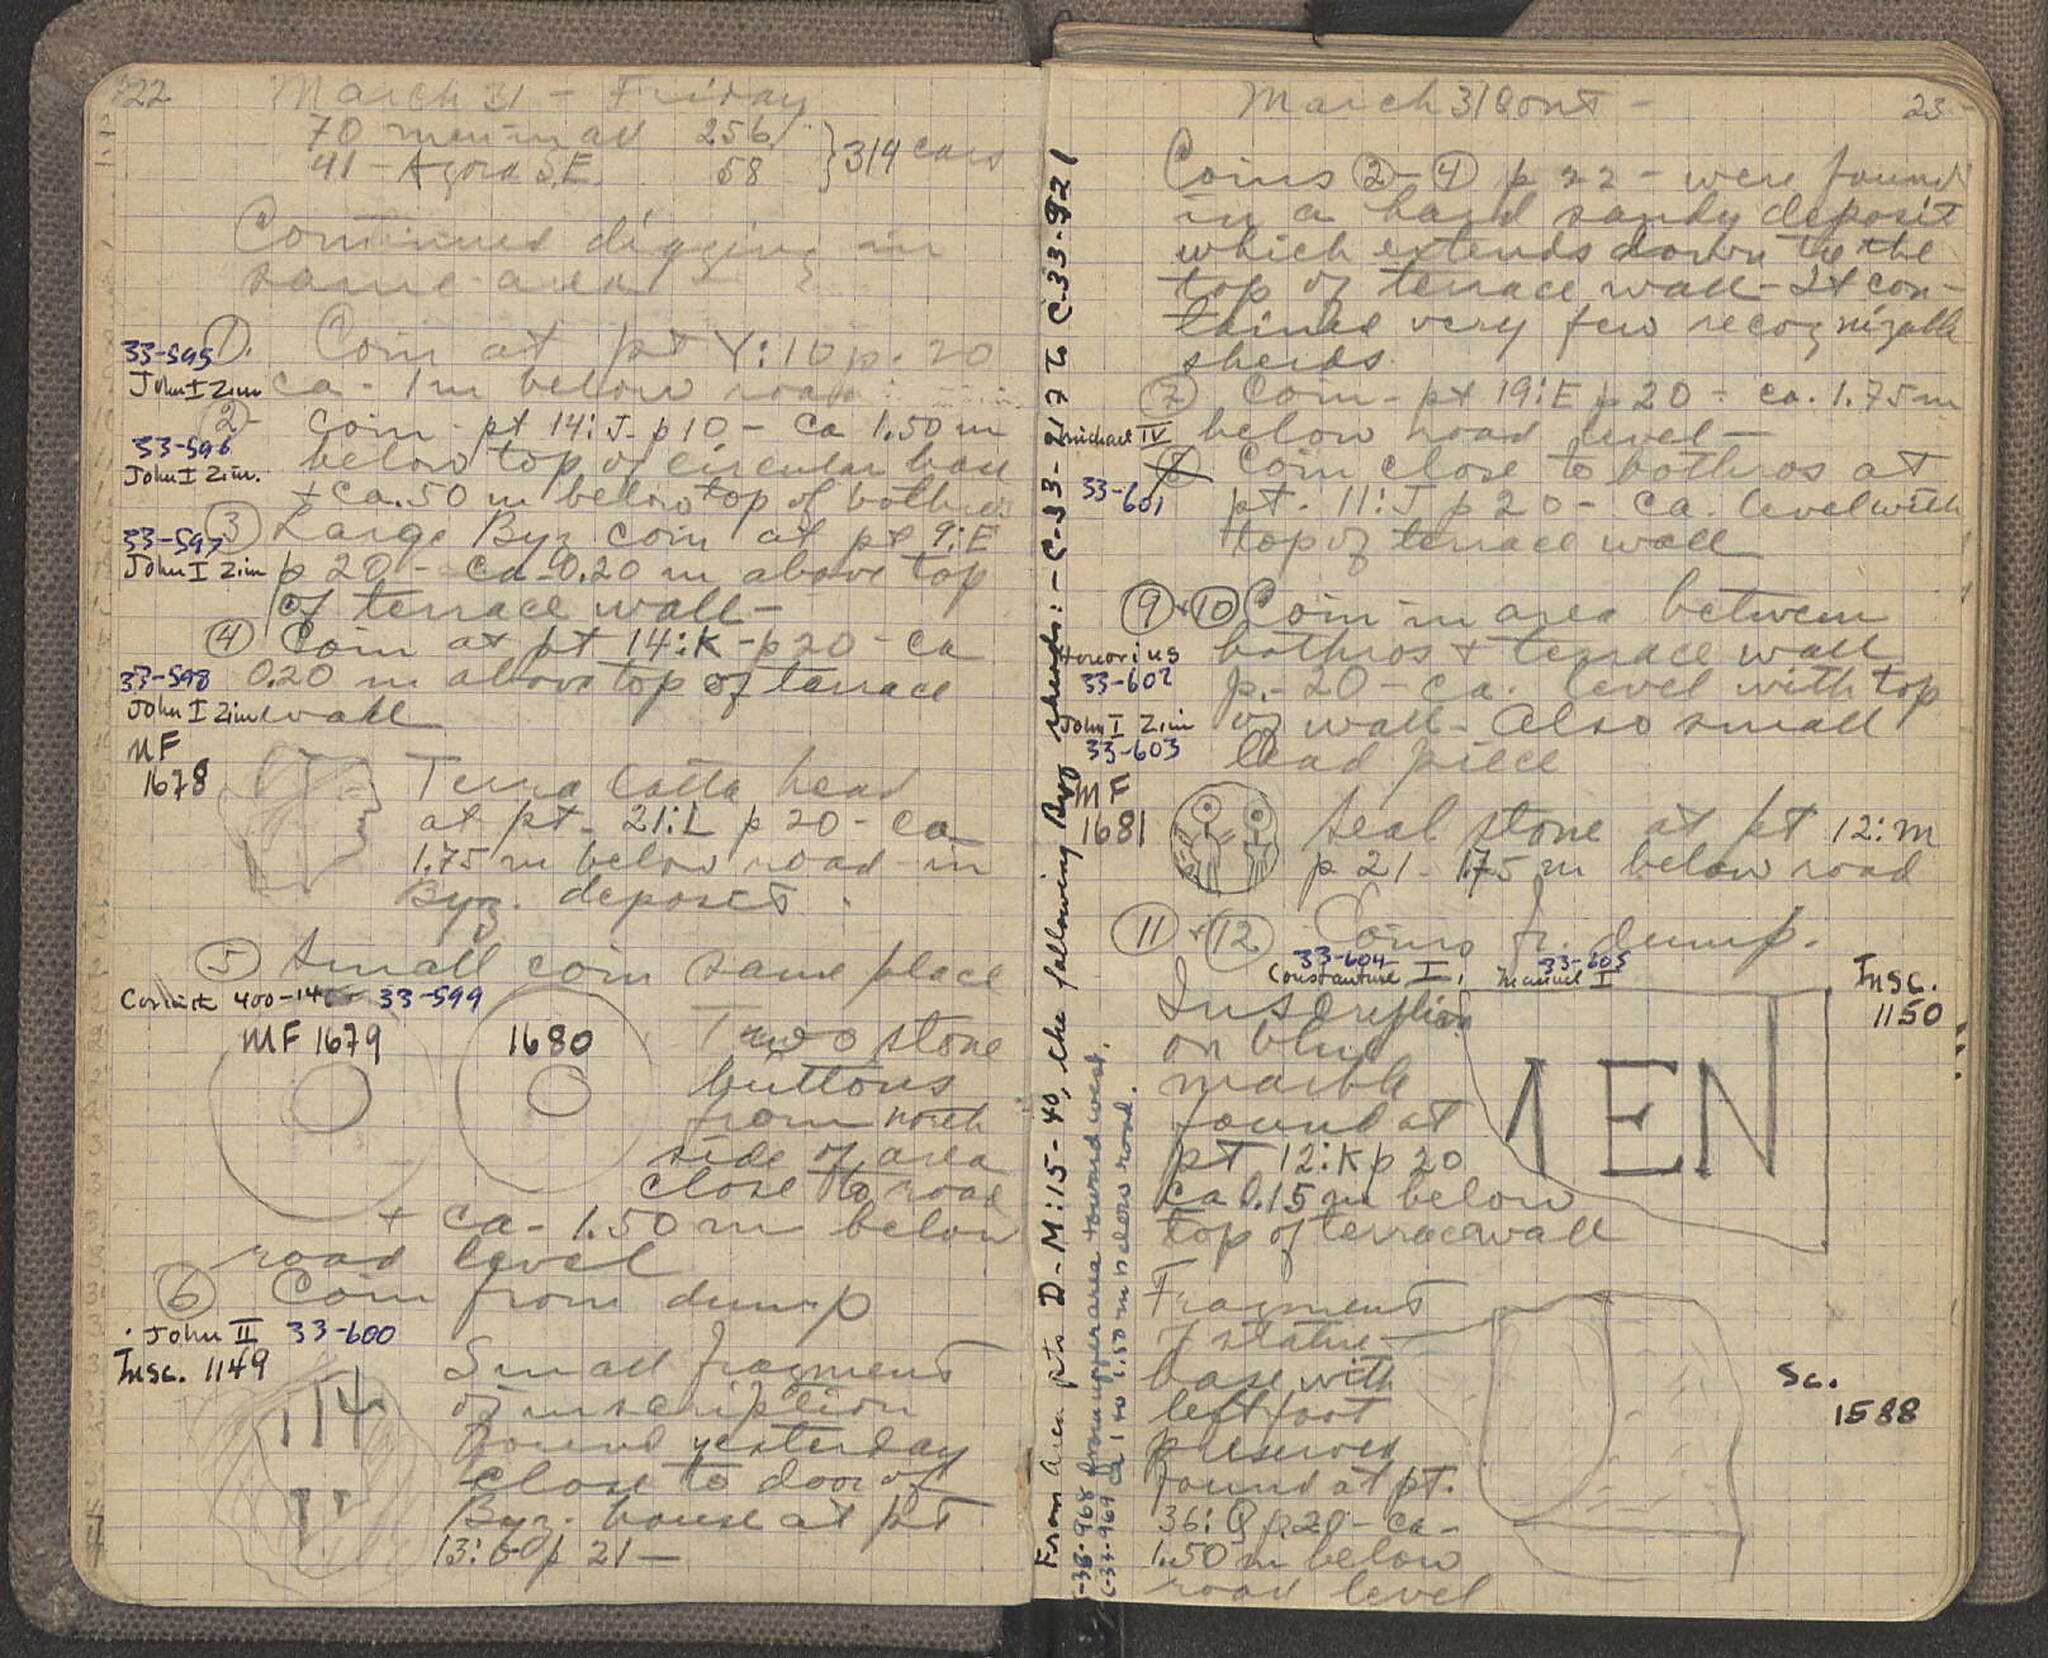 22
March 31 - Friday
70 men in all 256
41 - Agora S.E. 58 } 314 cars
Continued digging in
same area -
33-595
John I Zim
① Coin at pt Y:10 p. 20
ca. 1 m below road
33-596
John I Zim.
② Coin - pt 14:J p10 - ca 1.50 m
below top of circular base
+ ca .50 m below top of bothros
33-597
John I Zim
③ Large Byz coin at pt 9:E
p 20 - ca 0.20 m above top
of terrace wall -
④ Coin at pt 14:K - p 20 - ca
33-598
John I Zim
0.20 m above top of terrace
wall
MF
1678
Terra Cotta head
at pt. 21:L p 20 - ca
1.75 m below road in
Byz. deposit.
⑤ Small coin same place
Corinth 400-146 33-599
MF 1679
1680
Two stone
buttons
from north
side of area
close to road
+ ca - 1.50 m below
road level
⑥ Coin from dump
John II 33-600
Insc. 1149
Small fragment
of inscription
found yesterday
close to door of
Byz. house at pt
p 21 -
March 31 Cont -
23
Coins ②-④ p 22 - were found
in a hard sandy deposit
which extends down to the
top of terrace wall - It con-
tained very few recognizable
sherds.
⑦ Coin - pt 19:E p 20 - ca. 1.75 m
below road level -
Michael IV
33-601
⑧ Coin close to bothros at
pt. 11:J p 20 - ca. level with
top of terrace wall
⑨ + ⑩ Coin in area between
bothros + terrace wall
p. 20 - ca. level with top
of wall - Also small
lead piece
Honorius
33-602
John I Zim
33-603
MF
1681
Seal stone at pt 12:M
p 21 - 1.75 m below road
⑪ + ⑫ Coins fr. dump.
33-604
Constantine I,
33-605
Manuel I
Insc.
1150
Inscription
on blue
marble
found at
pt 12:K p 20
ca 0.15 m below
top of terrace wall
ΕΝ
Fragment
of statue
base with
left foot
preserved
found at pt.
36:Q p 20 - ca -
1.50 m below
road level
Sc.
1588
From area pts D-M:15-40, the following Byz sherds: - C-33-217 to C-33-921
C-33-968 from upper area toward west.
C-33-969 ca 1 to 1.50 m below road.